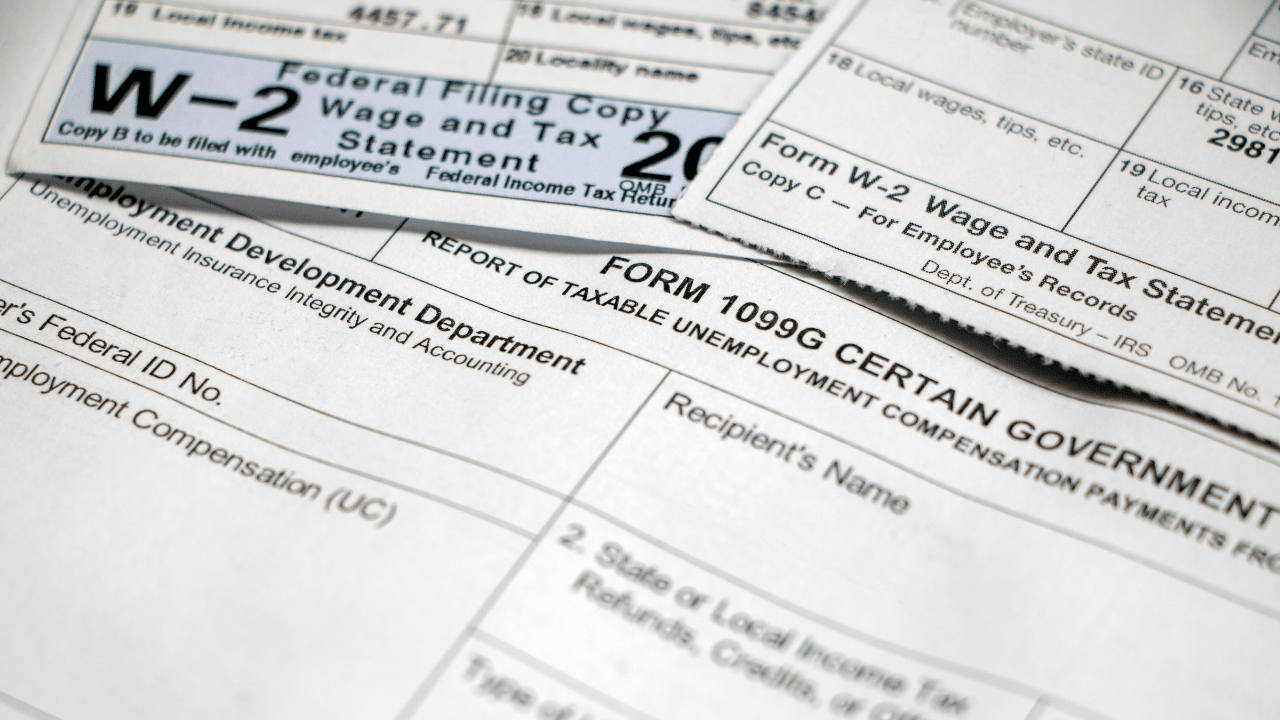 19 Local income tax
4457.71
18 Local wages, tips, etc
20 Locality name
W-2
Federal Filing Copy
Wage and Tax
Statement
20
Copy B to be filed with employee's Federal Income Tax Retur
OMB
Employer's state ID
number
18 Local wages, tips, etc.
16 State w
tips, etc
2981
19 Local incom
tax
Form W-2 Wage and Tax Stateme
Copy C – For Employee's Records
Dept. of Treasury – IRS OMB No. 1
Employment Development Department
Unemployment Insurance Integrity and Accounting
er's Federal ID No.
mployment Compensation (UC)
FORM 1099G CERTAIN GOVERNMENT
REPORT OF TAXABLE UNEMPLOYMENT COMPENSATION PAYMENTS FRO
Recipient's Name
2. State or Local Income Tax
Refunds, Credits, or Of
Type of